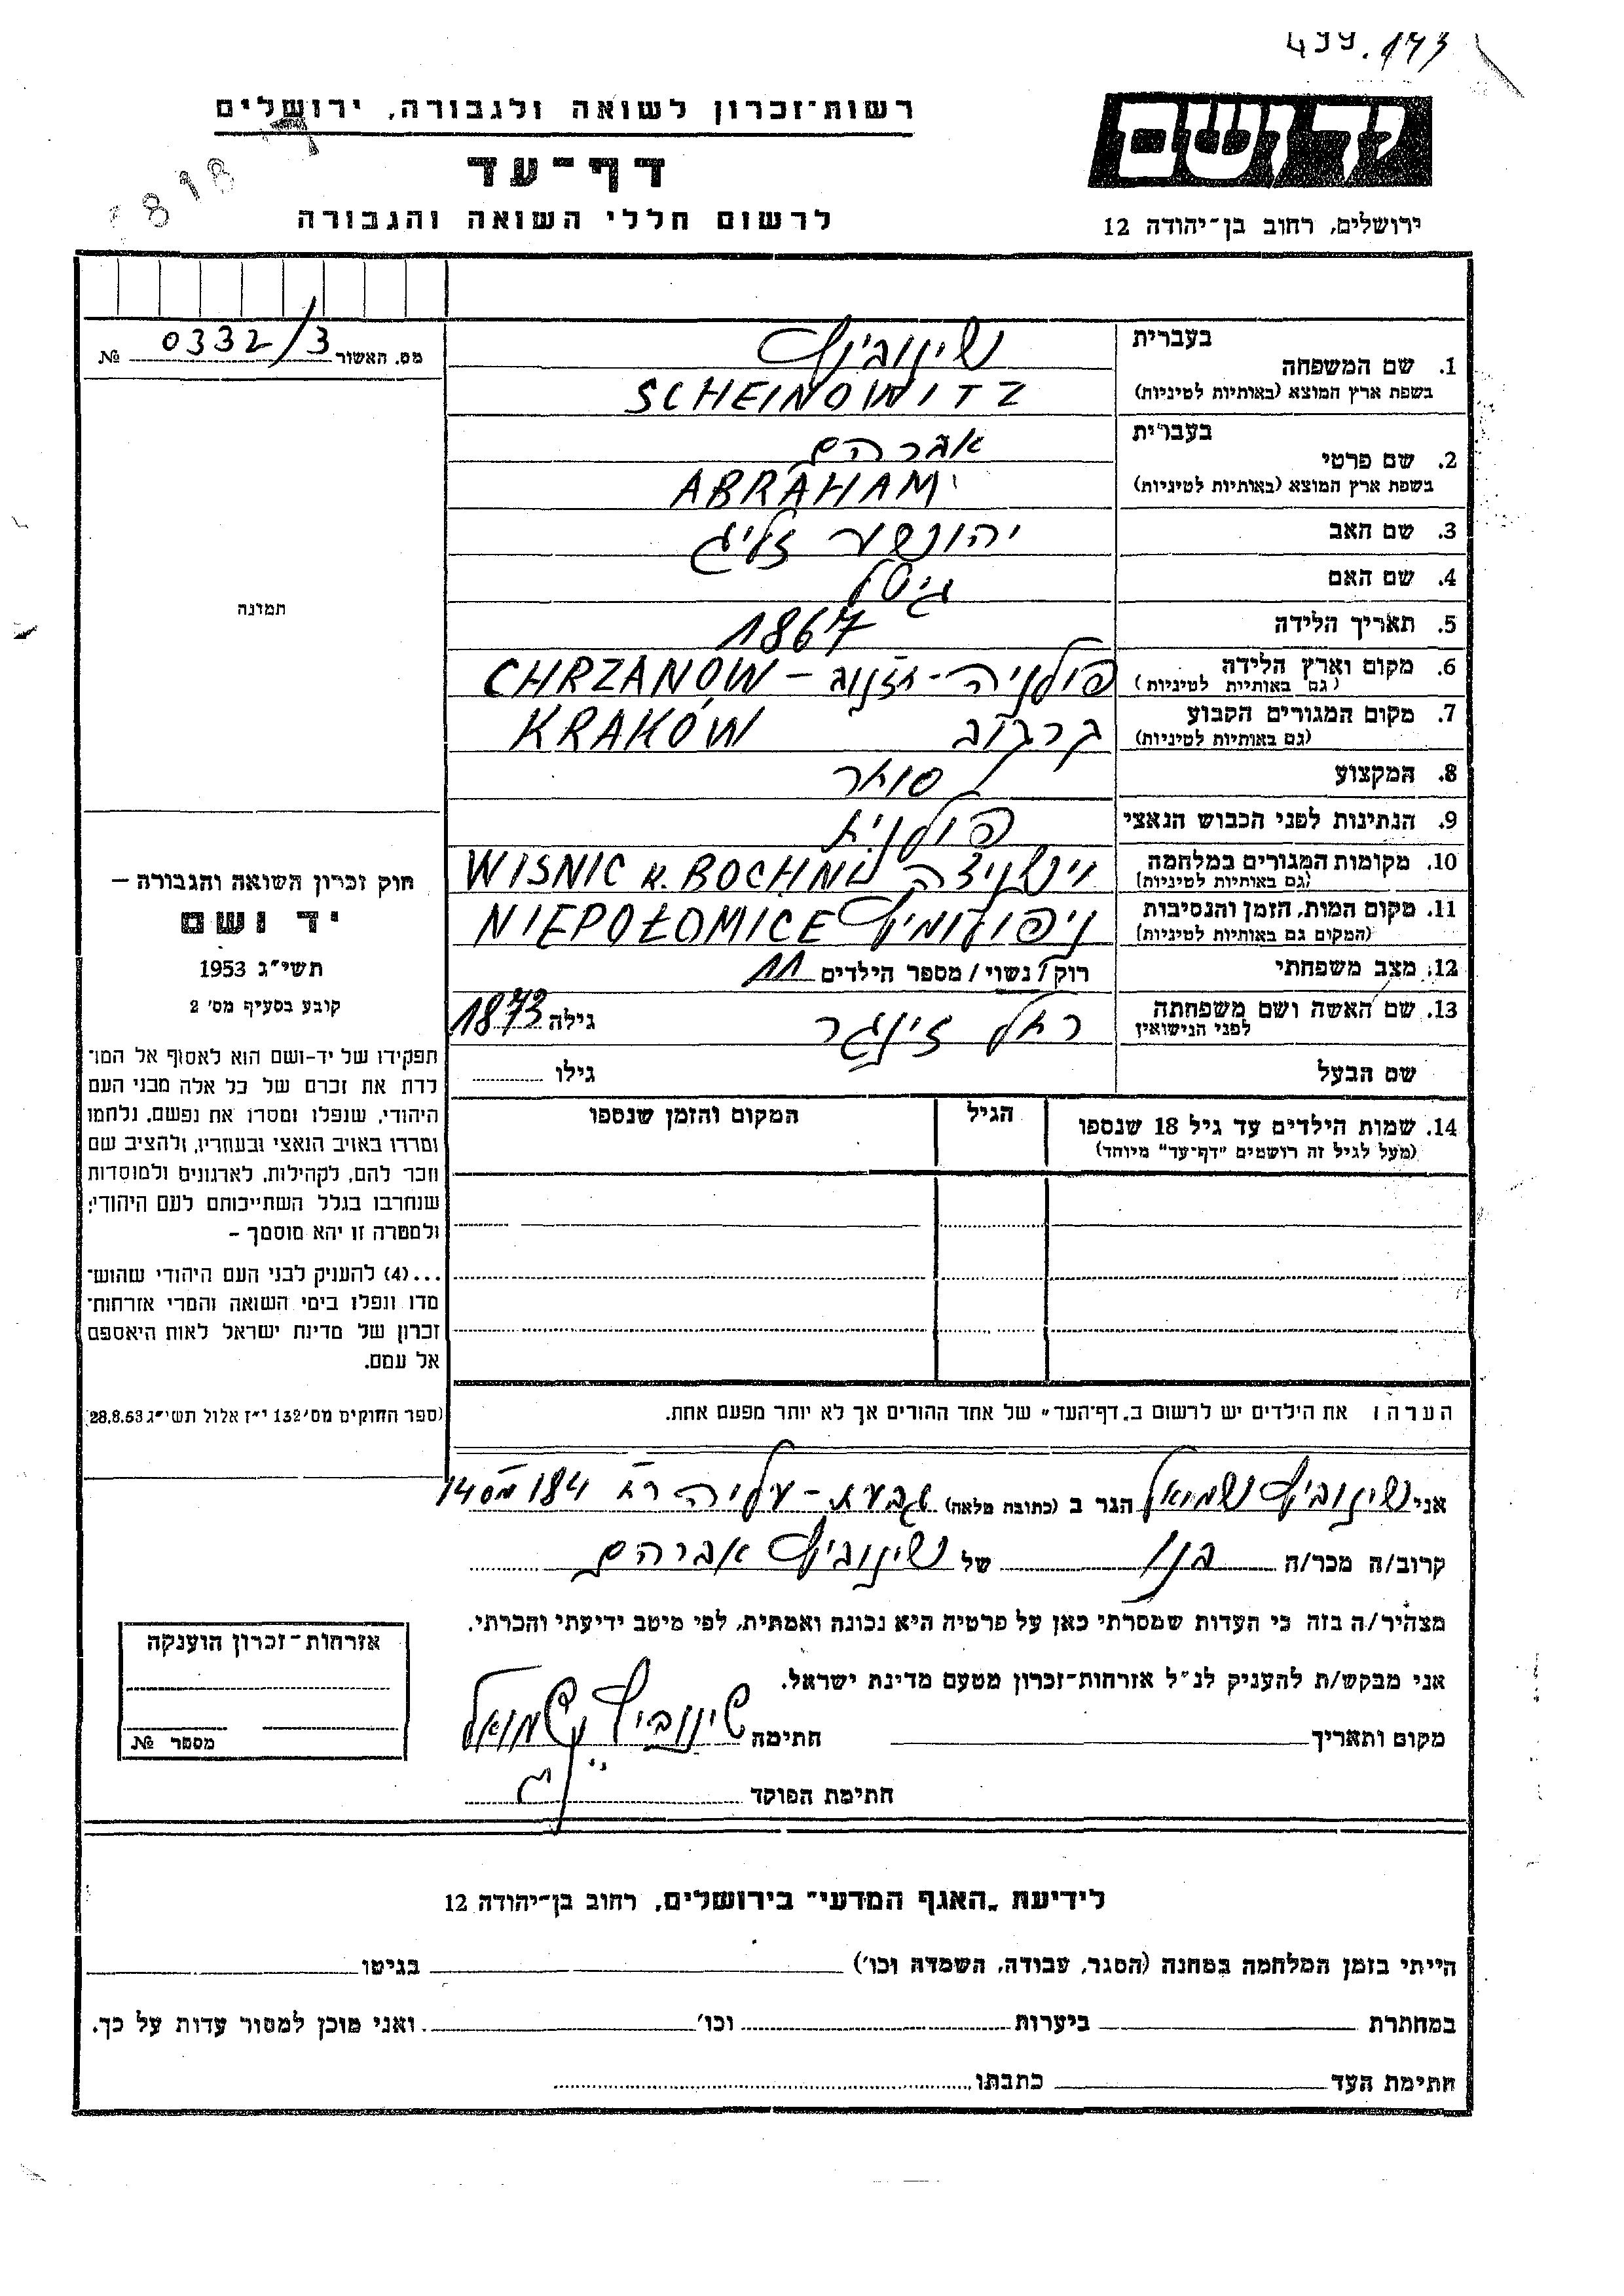 499.173
יד ושם
רשות־זכרון לשואה ולגבורה, ירושלים
דף־עד
לרשום חללי השואה והגבורה
ירושלים, רחוב בן־יהודה 12
818
מס. האשור 0332/3 №
תמונה
חוק זכרון השואה והגבורה —
יד ושם
תשי״ג 1953
קובע בסעיף מס׳ 2
תפקידו של יד-ושם הוא לאסוף אל המו־
לדת את זכרם של כל אלה מבני העם
היהודי, שנפלו ומסרו את נפשם, נלחמו
ומרדו באויב הנאצי ובעוזריו, ולהציב שם
וזכר להם, לקהילות, לארגונים ולמוסדות
שנחרבו בגלל השתייכותם לעם היהודי;
ולמטרה זו יהא מוסמך —
...(4) להעניק לבני העם היהודי שהוש־
מדו ונפלו בימי השואה והמרי אזרחות־
זכרון של מדינת ישראל לאות היאספם
אל עמם.
(ספר החוקים מס׳ 132 י״ז אלול תשי״ג 28.8.53)
בעברית
1. שם המשפחה שינוביץ
בשפת ארץ המוצא (באותיות לטיניות) SCHEINOWITZ
בעברית
2. שם פרטי אברהם
בשפת ארץ המוצא (באותיות לטיניות) ABRAHAM
3. שם האב יהושע זליג
4. שם האם גיטל
5. תאריך הלידה 1867
6. מקום וארץ הלידה פולניה - חזנוב - CHRZANÓW
(גם באותיות לטיניות)
7. מקום המגורים הקבוע קרקוב KRAKÓW
(גם באותיות לטיניות)
8. המקצוע סוחר
9. הנתינות לפני הכבוש הנאצי פולנית
10. מקומות המגורים במלחמה WISNIC K. BOCHNI
(גם באותיות לטיניות)
11. מקום המות, הזמן והנסיבות ניפולומיץ NIEPOŁOMICE
(המקום גם באותיות לטיניות)
12. מצב משפחתי רוק / נשוי / מספר הילדים 11
13. שם האשה ושם משפחתה רחל זינגר גילה 1873
לפני הנישואין
שם הבעל גילו
14. שמות הילדים עד גיל 18 שנספו הגיל המקום והזמן שנספו
(מעל לגיל זה רושמים "דף־עד" מיוחד)
הערה: את הילדים יש לרשום ב„דף־העד" של אחד ההורים אך לא יותר מפעם אחת.
אני שינוביץ שמואל הגר ב (כתובת מלאה) גבעת - עליה רח 184 מס 14
קרוב/ה מכר/ה בנו של שינוביץ אברהם
מצהיר/ה בזה כי העדות שמסרתי כאן על פרטיה היא נכונה ואמתית, לפי מיטב ידיעתי והכרתי.
אני מבקש/ת להעניק לנ״ל אזרחות־זכרון מטעם מדינת ישראל.
מקום ותאריך חתימה שינוביץ שמואל
חתימת הפוקד
אזרחות־זכרון הוענקה
מספר №
לידיעת „האגף המדעי" בירושלים, רחוב בן־יהודה 12
הייתי בזמן המלחמה במחנה (הסגר, עבודה, השמדה וכו׳) בגיטו
במחתרת ביערות וכו׳ ואני מוכן למסור עדות על כך.
חתימת העד כתבתו